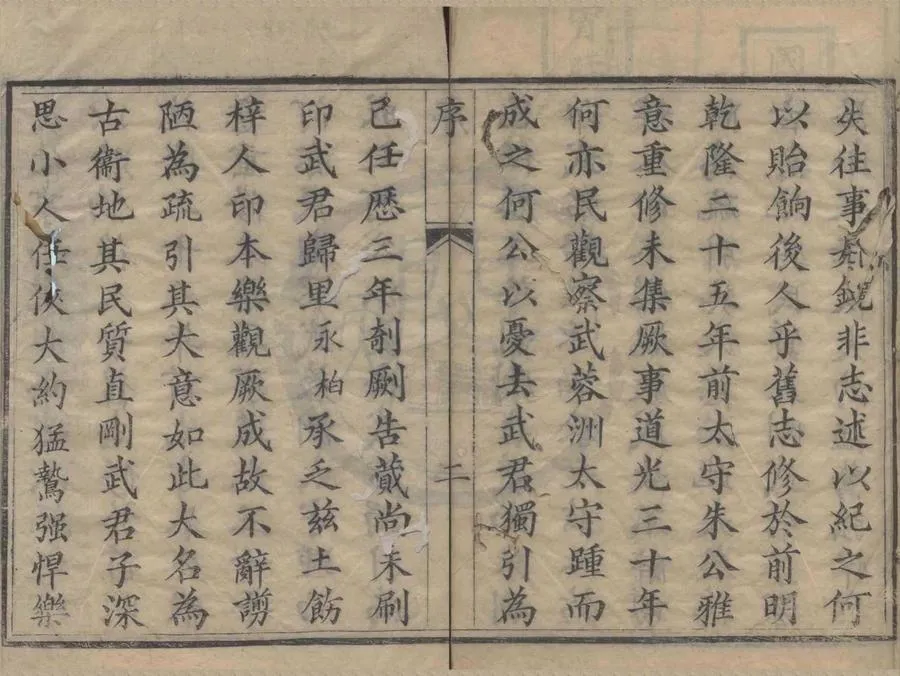 失往事煞鏡非志述以紀之何
以貽餉後人乎舊志修於前明
乾隆二十五年前太守朱公雅
意重修未集厥事道光三十年
何亦民觀察武蓉洲太守踵而
成之何公以憂去武君獨引為
序 二
己任歷三年剞劂告蕆尚未刷
印武君歸里永柏承乏茲土飭
梓人印本樂觀厥成故不辭謭
陋為疏引其大意如此大名為
古衞地其民質直剛武君子深
思小人任俠大約猛鷙强悍樂